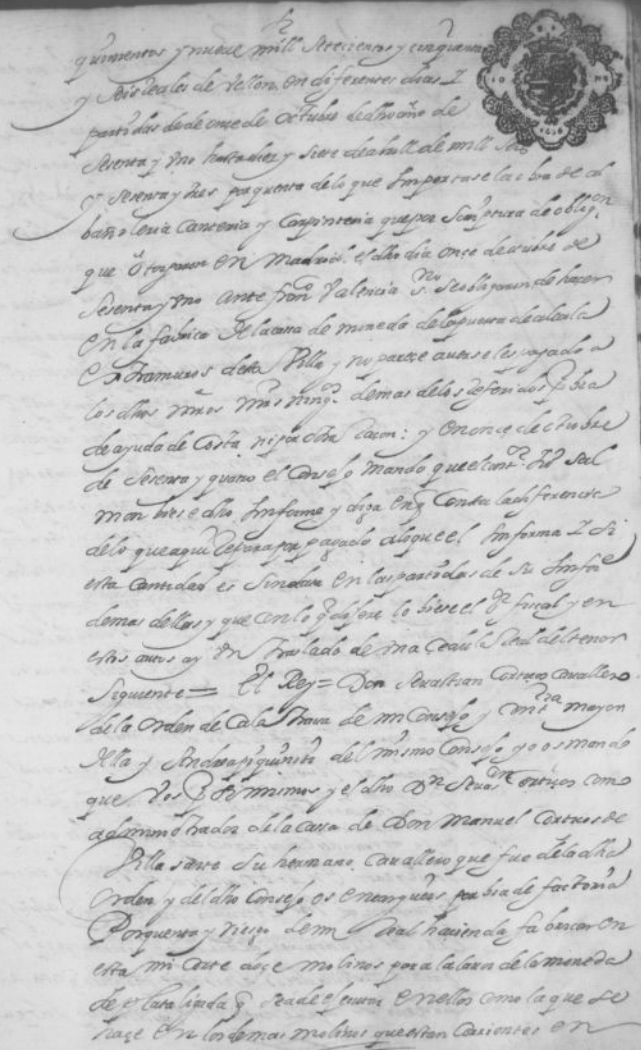 quinientos y nueve mill setecientos y cinquenta
y seis reales de vellon en diferentes dias y
partidas desde onçe de octubre de dho año de
sesenta y uno hasta diez y siete de abrill de mill seis
y sesenta y tres por quenta de lo que Importase la obra de al
bañileria canteria y carpinteria que por scriptura de oblig.on
que otorgaron en Madrid el dho dia onçe de octubre de
sesenta y uno ante fran.co Valencia s.no se obligaron de hazer
en la fabrica de la casa de moneda de la puerta de alcala
extramuros desta Villa y no pareze averseles pagado a
los dhos mros mrs ning.s demas de los referidos
de ayuda de costa ni por otra raçon: y en onçe de octubre
de sesenta y quatro el Consejo mando que el cont.or
viese dho Informe y diga en q consta la diferencia
de lo que aqui por pagado a lo que el Informa y si
esta cantidad es Incluida en las partidas de su Infor.e
demas dellas y que con lo q dijere lo viese el s.r fiscal y en
estos autos ay un traslado de una cedula Real del tenor
siguiente = El Rey = Don Sevastian Cortiços cavallero
de la orden de Calatrava de mi Consejo y cont.ria mayor
della y Andrea piquinoti del mismo Consejo yo os mando
que vos y el dho D.n Sevas.an Cortiços como
administrador de la casa de Don Manuel Cortiços de
Villasante su hermano cavallero que fue de la dha
orden y del dho Consejo os encargueis por via de factoria
Por quenta y riesgo de mi Real hacienda fabricar en
esta mi corte doçe molinos para la labor de la moneda
de plata ligada q se a de ejecutar en ellos como la que se
haçe en los demas molinos que estan corrientes en